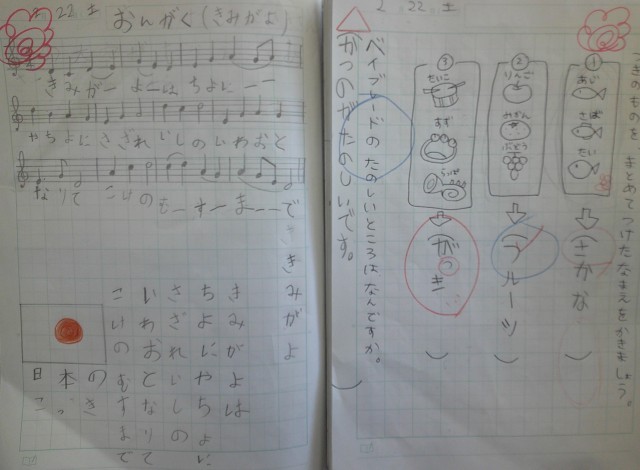 22 土
おんがく(きみがよ)
きみがーよーはちよにーー
やちよにさざれいしのいわおと
なりてこけのむーすーまーーで
きみがよ
きみがよは
ちよにやちよに
さざれいしの
いわおとなりて
こけのむすまで
日本の
こっき
2 22 土
きのものを、まとめてつけたなまえをかきましょう。
①
あじ
さば
たい
(さかな)
②
りんご
みかん
ぶどう
(フルーツ)
③
たいこ
すず
らっぱ
(がっき)
ベイブレードのたのしいところはなんですか。
かつのがたのしいです。